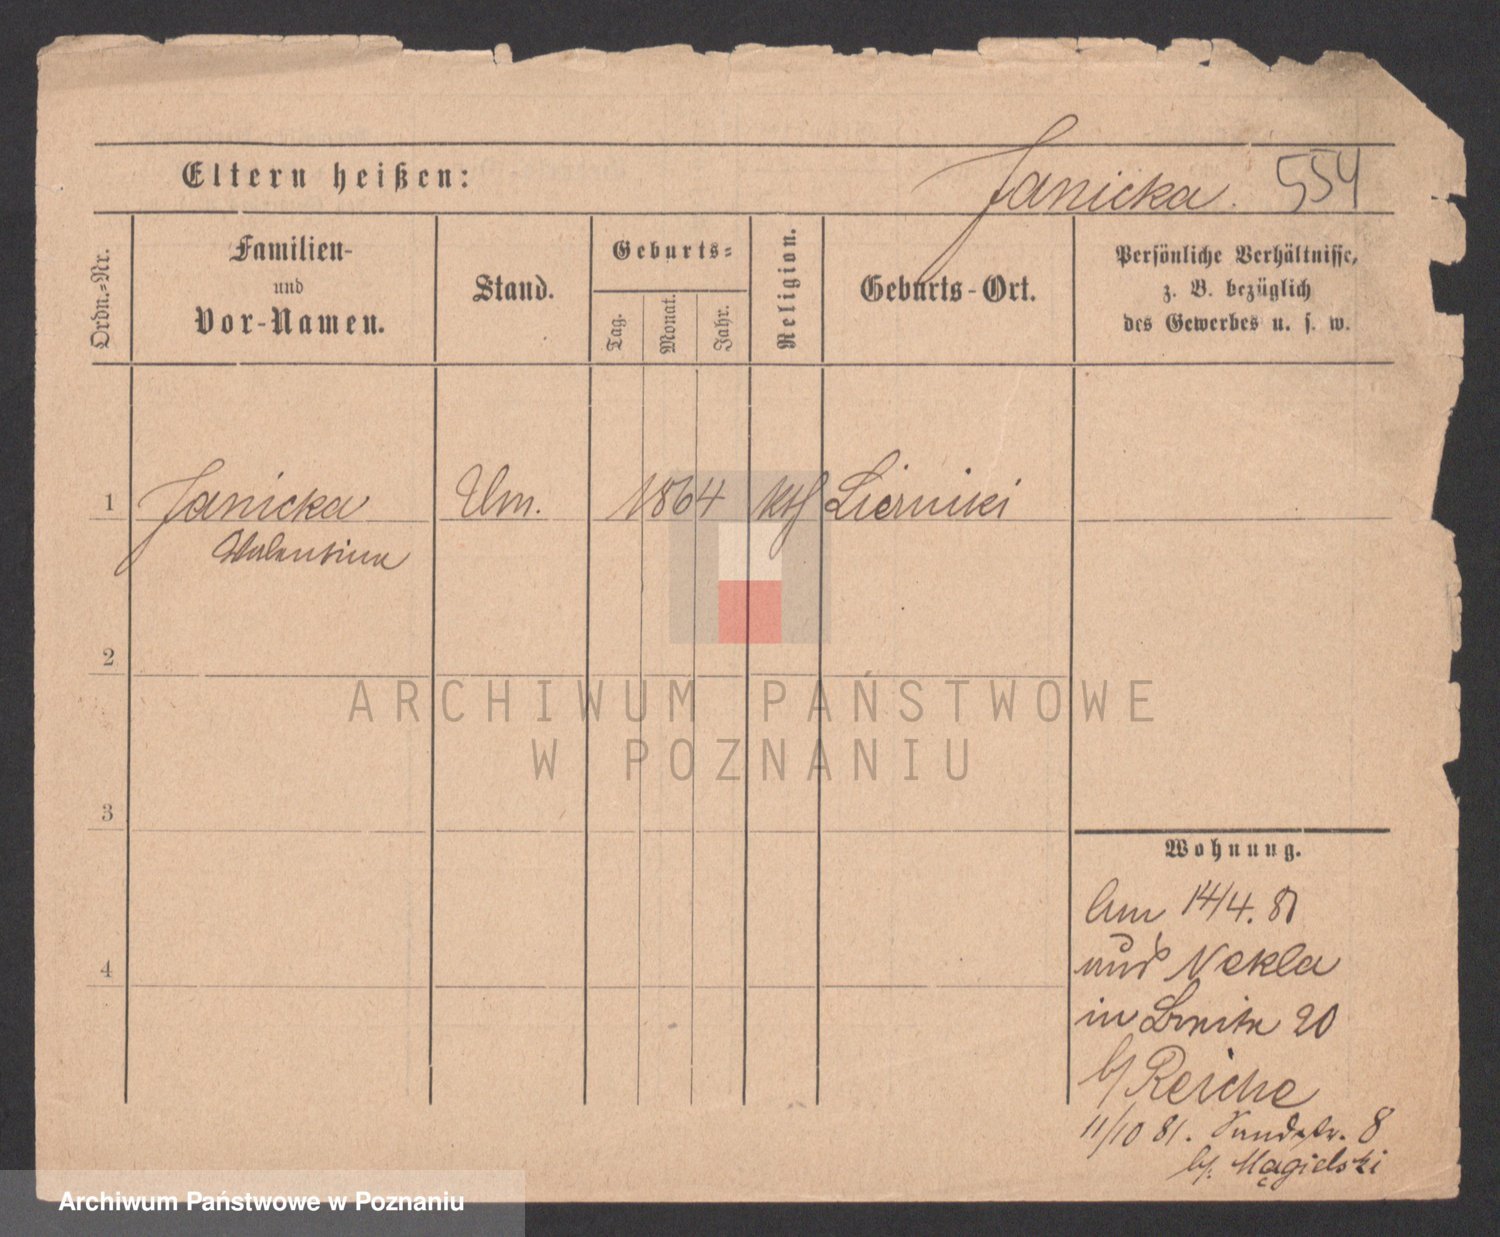 Eltern heißen:
Janicka. 554
Ordn.-Nr.
Familien-
und
Vor-Namen.
Stand.
Geburts-
Tag.
Monat.
Jahr.
Religion.
Geburts-Ort.
Persönliche Verhältnisse,
z. B. bezüglich
des Gewerbes u. s. w.
1 Janicka Um. 1864 kth Lierniki
Valentina
2
ARCHIWUM PAŃSTWOWE
W POZNANIU
3
Wohnung.
14/4. 81
aus Nekla
in 20
b/ Reiche
4
11/10 81. Sandstr. 8
b/. Mągielski
Archiwum Państwowe w Poznaniu